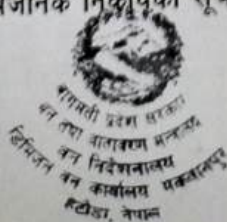 निकायको
बागमती प्रदेश सरकार
वन तथा वातावरण मन्त्रालय
वन निर्देशनालय
डिभिजन वन कार्यालय मकवानपुर
हेटौंडा, नेपाल